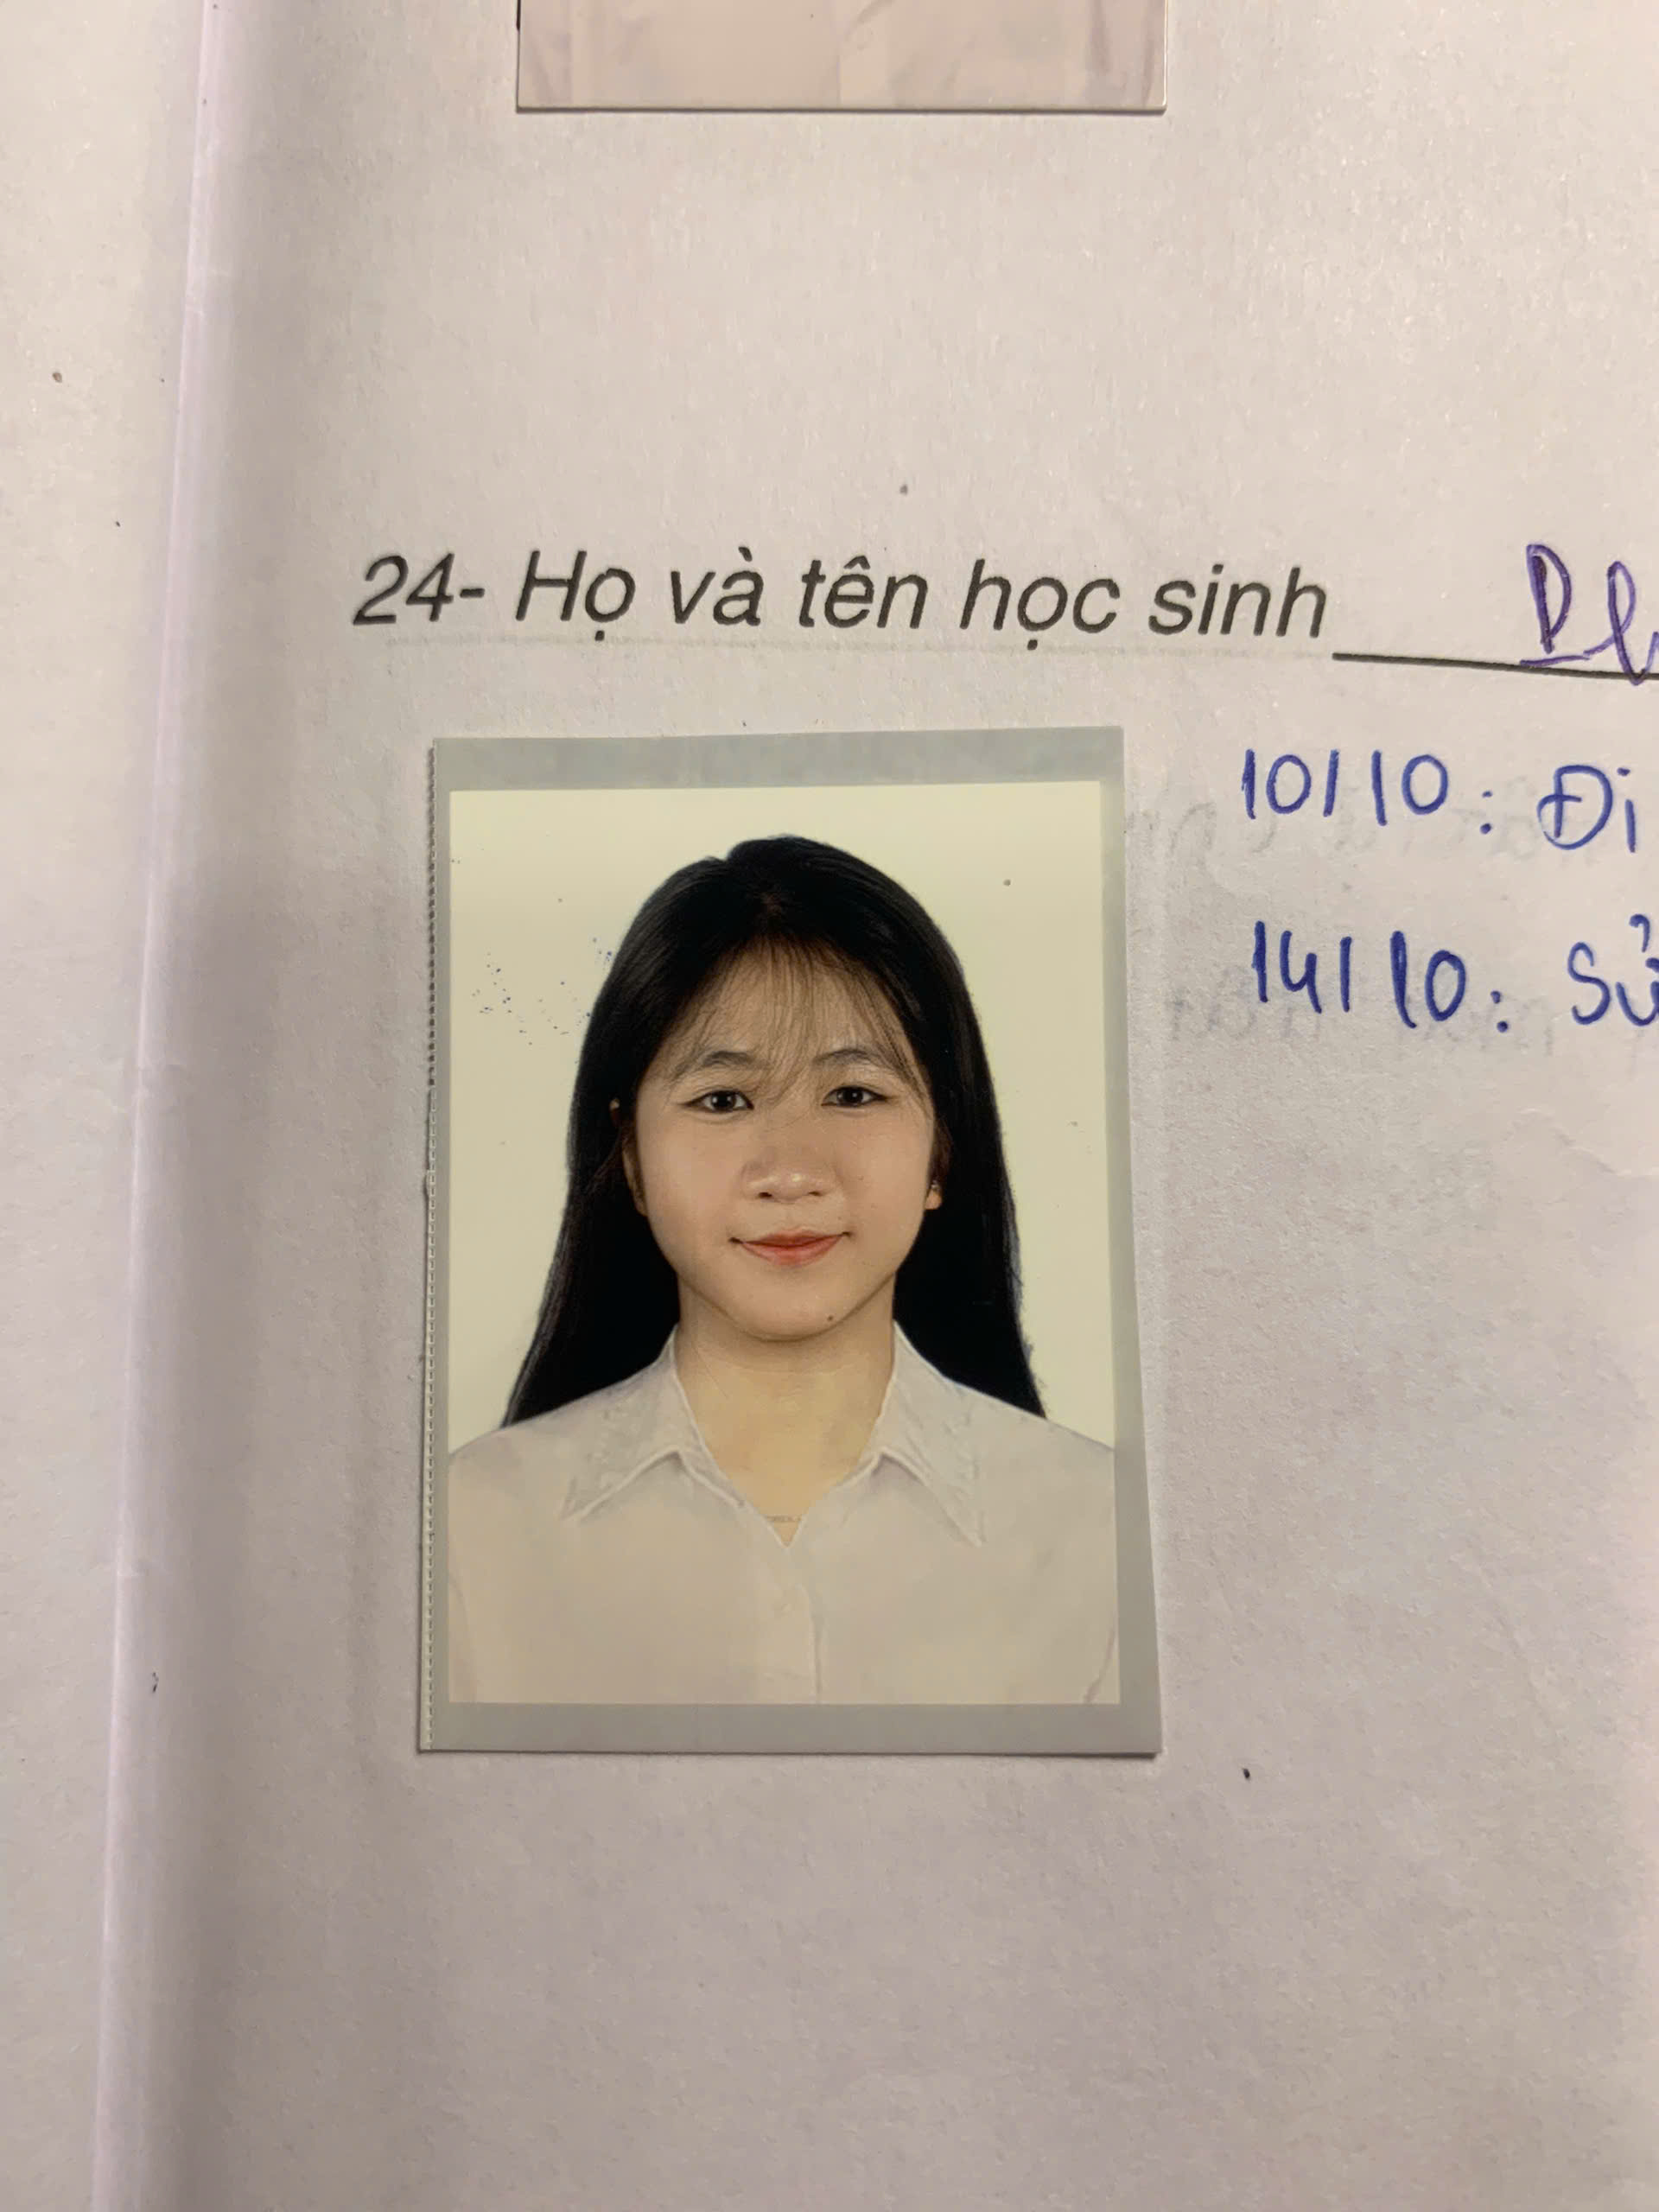 24- Họ và tên học sinh
10/10: Đi
14/10: Sử